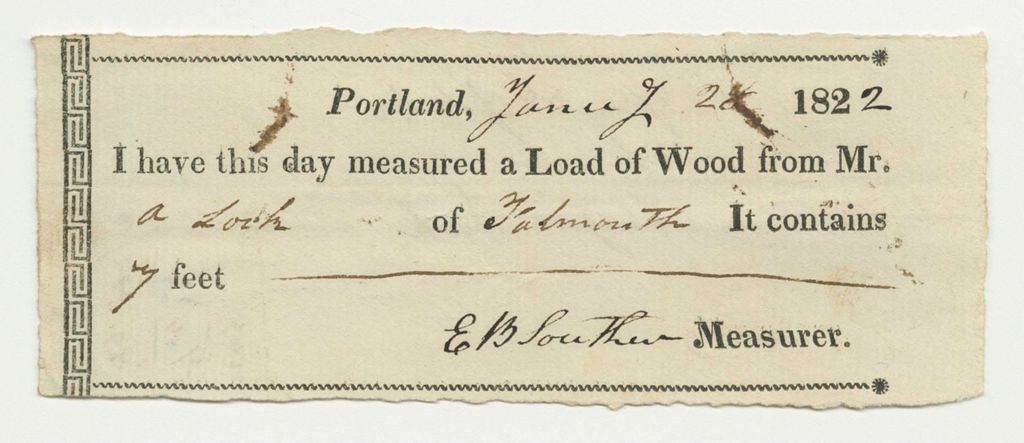 Portland, Janu 28 1822
I have this day measured a Load of Wood from Mr.
a Lock of Falmouth It contains
7 feet
E B Souther Measurer.